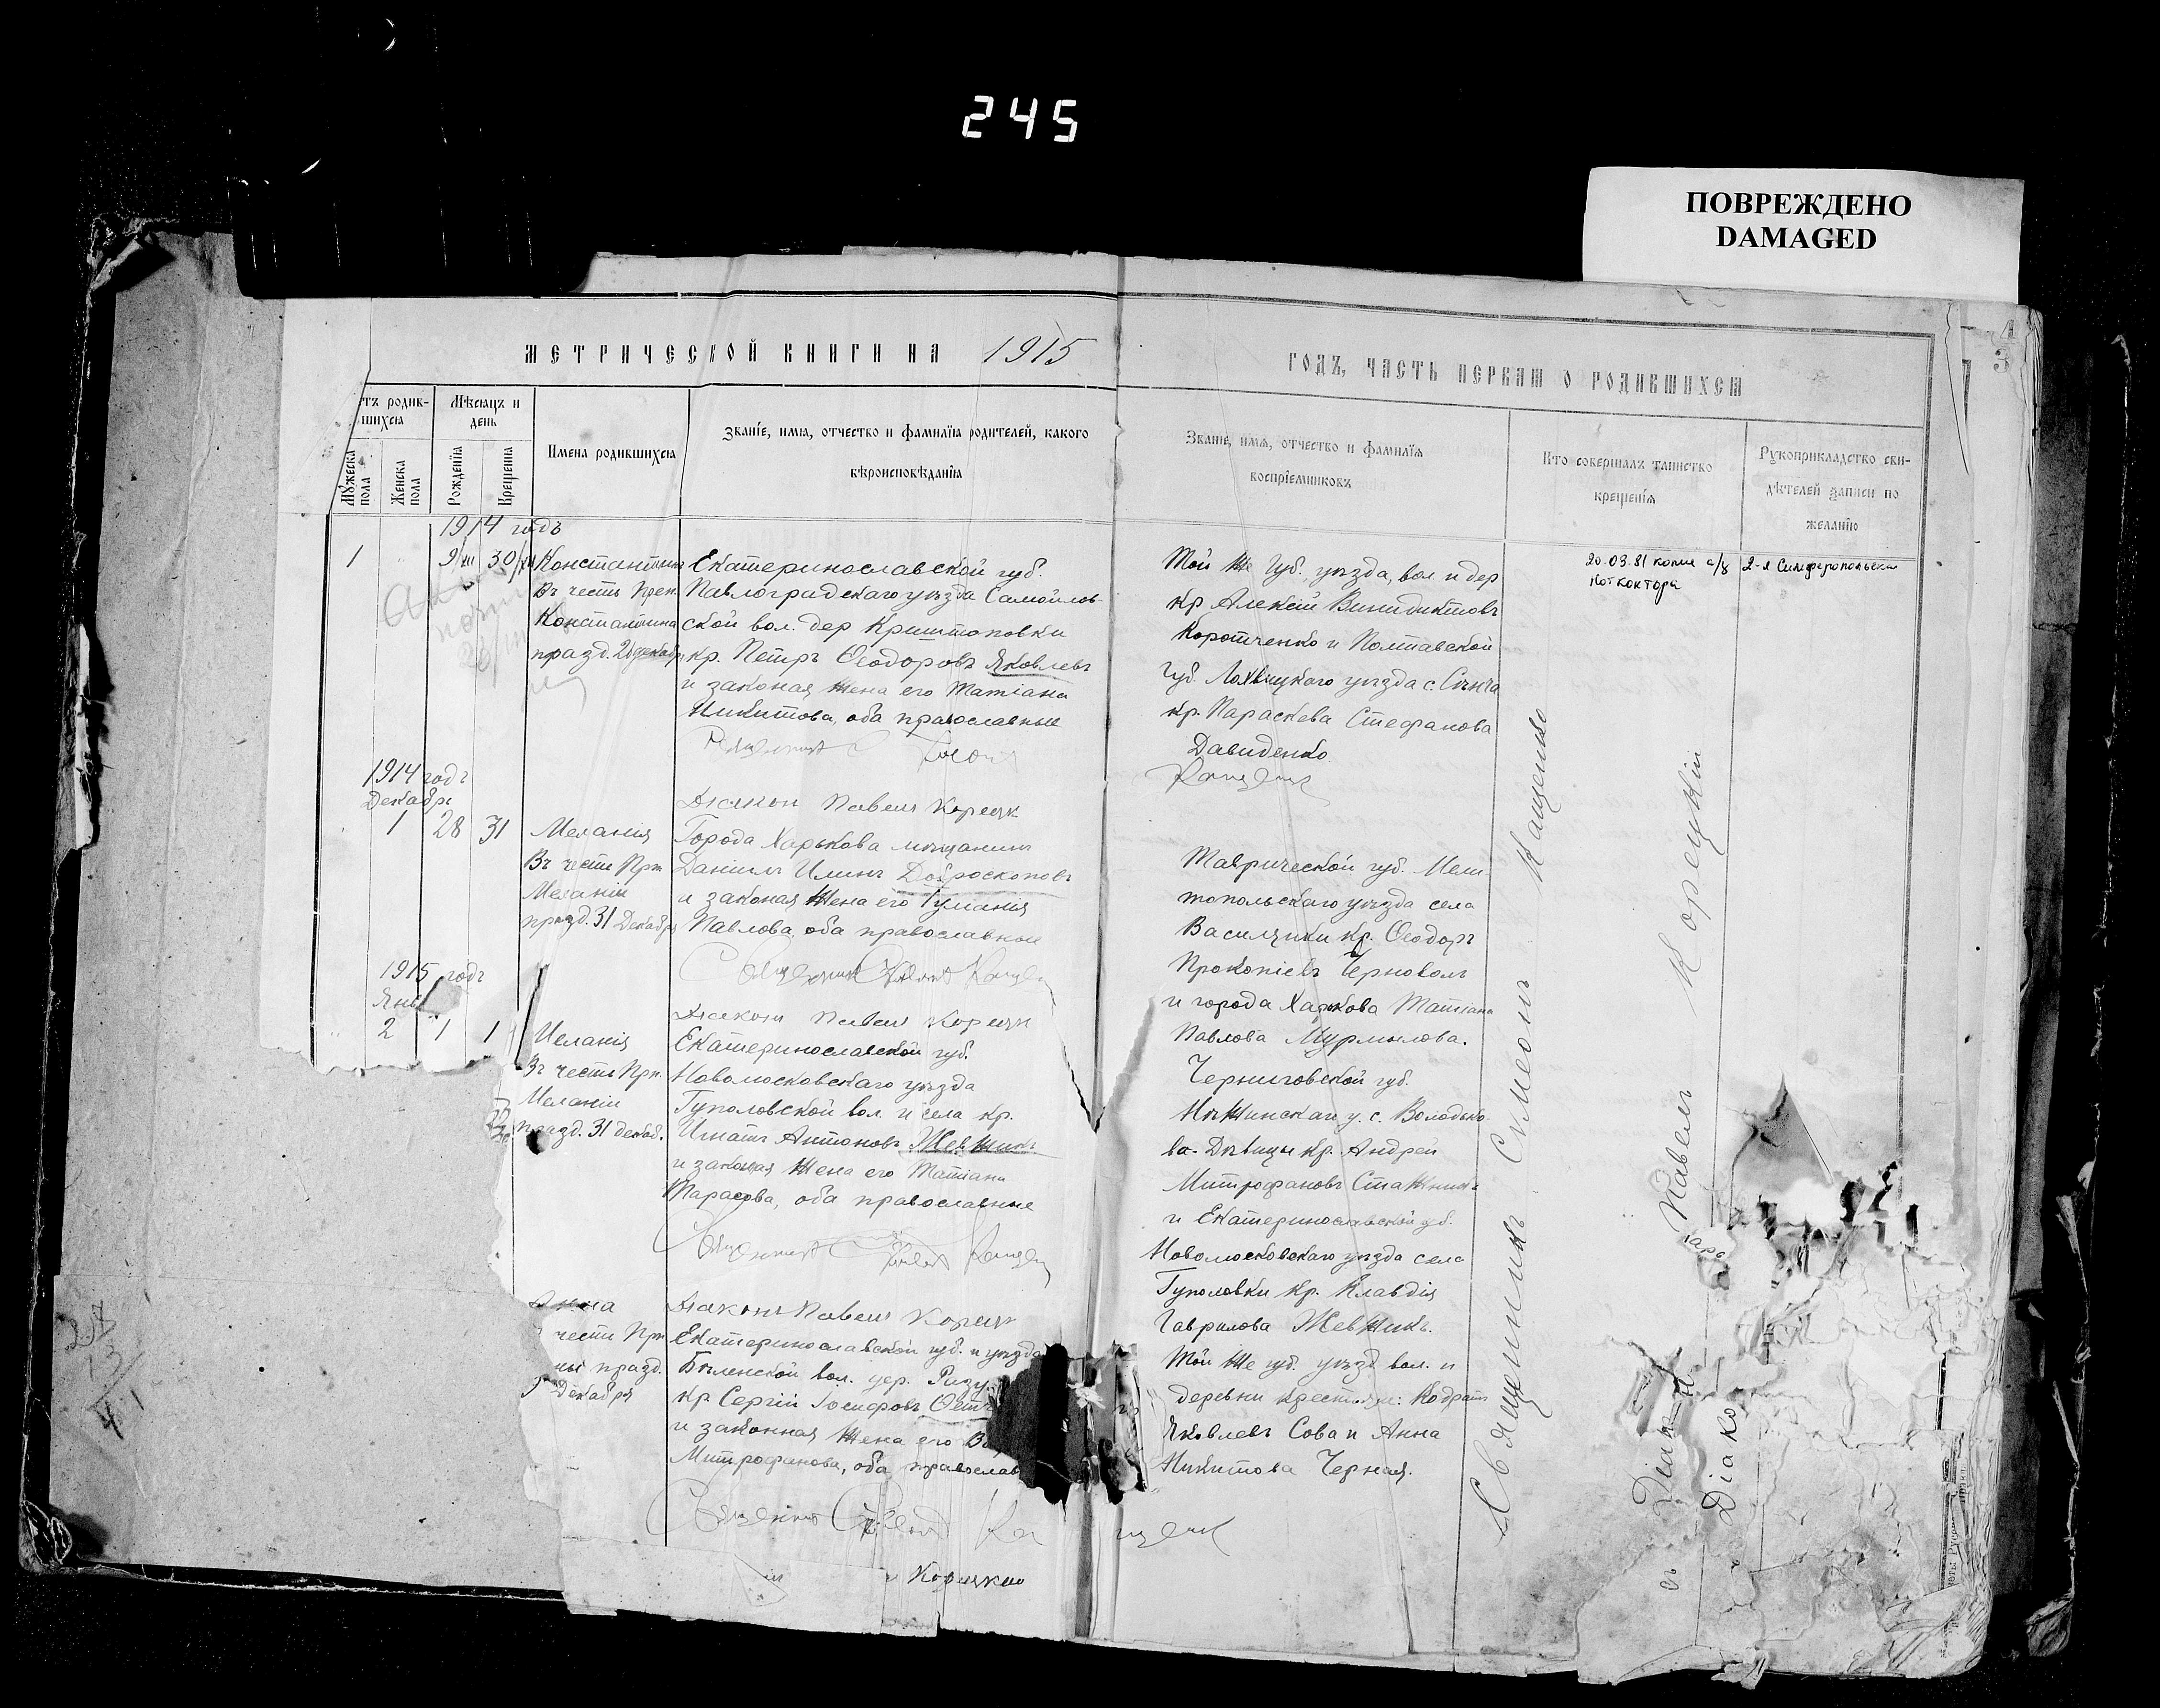 245
ПОВРЕЖДЕНО
DAMAGED
МЕТРИЧЕСКОЙ КНИГИ НА 1915
ГОДЪ, ЧАСТЬ ПЕРВАЯ О РОДИВШИХСЯ
3
тъ родив-
шихся
Мѣсяцъ и
день
Мужеска
пола
Женска
пола
Рожденія
Крещенія
Имена родившихся
Званіе, имя, отчество и фамилія родителей, какого
вѣроисповѣданія
Званіе, имя, отчество и фамилія
воспріемниковъ
Кто совершалъ таинство
крещенія
Рукоприкладство сви-
дѣтелей записи по
желанію
1914 годъ
1
9/XII 30/XII
Константинъ
Въ честь Преп.
Константина
празд. 26 декабр
Екатеринославской губ.
Павлоградскаго уѣзда Самойлов-
ской вол. дер Криштоповки
кр. Петръ Ѳеодоровъ Яковлевъ
и законая жена его Татіана
Никитова, оба православные
Той же губ. уѣзда, вол и дер
кр Алексій Винидиктовъ
Коротченко и Полтавской
Губ. Лохвицкаго уѣзда с. Сѣнча
кр. Параскева Стефанова
Давиденко
20.03.81 копия
2-я Симферопольск
нот контора
1914 годъ
Декабрь
1 28 31
Діаконъ Павелъ Корецк
Меланія
Въ честь Прп
Меланіи
празд. 31 Декабря
Города Харькова мѣщанинъ
Даніилъ Илинъ Доброскоковъ
и законая жена его Іуліанія
Павлова, оба православные
Таврической губ. Мели
топольскаго уѣзда села
Василѣвки кр. Ѳеодоръ
Прокопіевъ Черноволъ
и города Харькова Татіана
Павлова Мурмылова.
1915 годъ
Янв
2 1 1
Діаконъ Павелъ Корецк
Меланія
Въ честь Прп.
Меланіи
празд. 31 декаб.
Екатеринославской губ.
Новомосковскаго уѣзда
Гуполовской вол. и села кр.
Игнатъ Антоновъ Жевжикъ
и законая жена его Татіана
Тарасова, оба православные
Черниговской губ.
Нѣжинскаго у. с. Володько-
ва-Дѣвицы кр. Андрей
Митрофановъ Стажникъ
и Екатеринославской губ.
Новомосковскаго уѣзда села
Гуполовки кр. Клавдія
Гаврилова Жевжикъ.
Діаконъ Павелъ Корецк
нна
честь Прп
ны празд.
Декабря
Екатеринославской губ. и уѣзда
Бѣленской вол. дер.
кр Сергій Іосифовъ
и законная жена его
Митрофанова, оба православ
Той же губ. уѣзд. вол. и
деревни крестьяне: Кодратъ
Яковлевъ Сова и Анна
Никитова Черная.
Корецкій
Священникъ Симеонъ Кащенко
Діаконъ Павелъ Корецкій
Діако